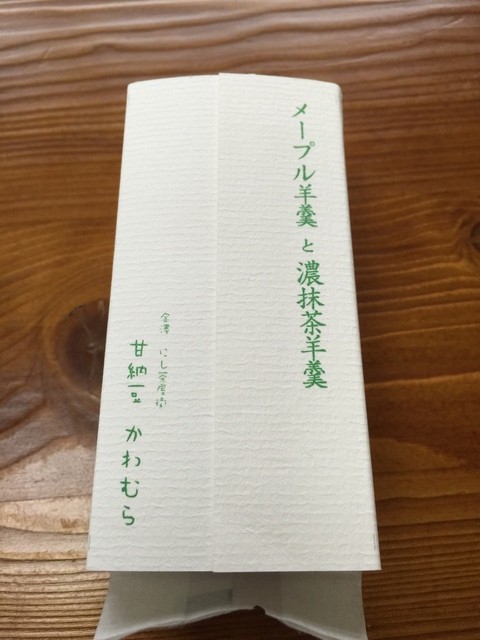 メープル羊羹と濃抹茶羊羹
金澤 にし茶屋街
甘納豆 かわむら